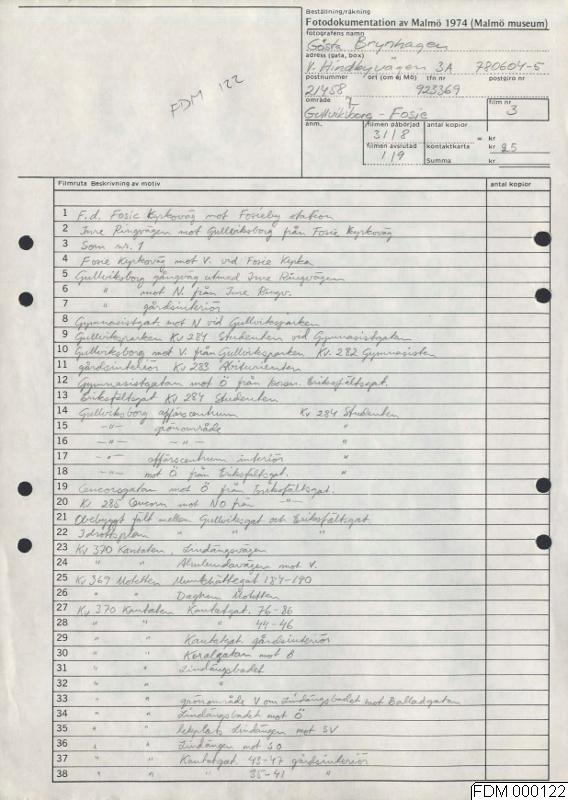 Beställning/räkning
Fotodokumentation av Malmö 1974 (Malmö museum)
fotografens namn
Gösta Brynhagen
adress (gata, box)
V. Hindbyvägen 3A 780604-5
postnummer ort (om ej Mö) tfn nr postgiro nr
21458 923369
område film nr
Gullviksborg - Fosie 3
anm. filmen påbörjad antal kopior
31/8 = kr
filmen avslutad kontaktkarta kr 25
1/9 Summa kr
FDM 122
Filmruta Beskrivning av motiv antal kopior
1 F.d. Fosie Kyrkoväg mot Fosieby station
2 Inre Ringvägen mot Gullviksborg från Fosie Kyrkoväg
3 Som nr. 1
4 Fosie Kyrkoväg mot V. vid Fosie Kyrka
5 Gullviksborg gångväg utmed Inre Ringvägen
6 " mot N. från Inre Ringv.
7 " gårdsinteriör
8 Gymnasistgat. mot N vid Gullviksparken
9 Gullviksparken Kv 284 Studenten vid Gymnasistgatan
10 Gullviksborg mot V. från Gullviksparken Kv. 282 Gymnasisten
11 gårdsinteriör Kv 283 Abiturienten
12 Gymnasistgatan mot Ö från Eriksfältsgat.
13 Eriksfältsgat Kv 284 Studenten
14 Gullviksborg affärscentrum Kv 284 Studenten
15 -"- grönområde "
16 -"- -"-
17 -"- affärscentrum interiör "
18 -"- mot Ö från Eriksfältsgat. "
19 Censorsgatan mot Ö från Eriksfältsgat.
20 Kv 285 Censorn mot NO från -"-
21 Obebyggt fält mellan Gullviksgat och Eriksfältsgat
22 Idrottsplan " " "
23 Kv 370 Kantaten, Lindängsvägen
24 " " Almlundavägen mot V.
25 Kv 369 Motetten Munkhättegat 184-190
26 " " Daghem Motetten
27 Kv 370 Kantaten Kantatgat. 76-86
28 " " " 44-46
29 " " Kantatgat gårdsinteriör
30 " " Koralgatan mot 8
31 " " Lindängsbadet
32 " " "
33 " " grönområde V om Lindängsbadet mot Balladgatan
34 " " Lindängsbadet mot Ö
35 " " lekplats Lindängen mot SV
36 " " Lindängen mot SO
37 " " Kantatgat. 43-47 gårdsinteriör
38 " " " 35-41 "
FDM 000122